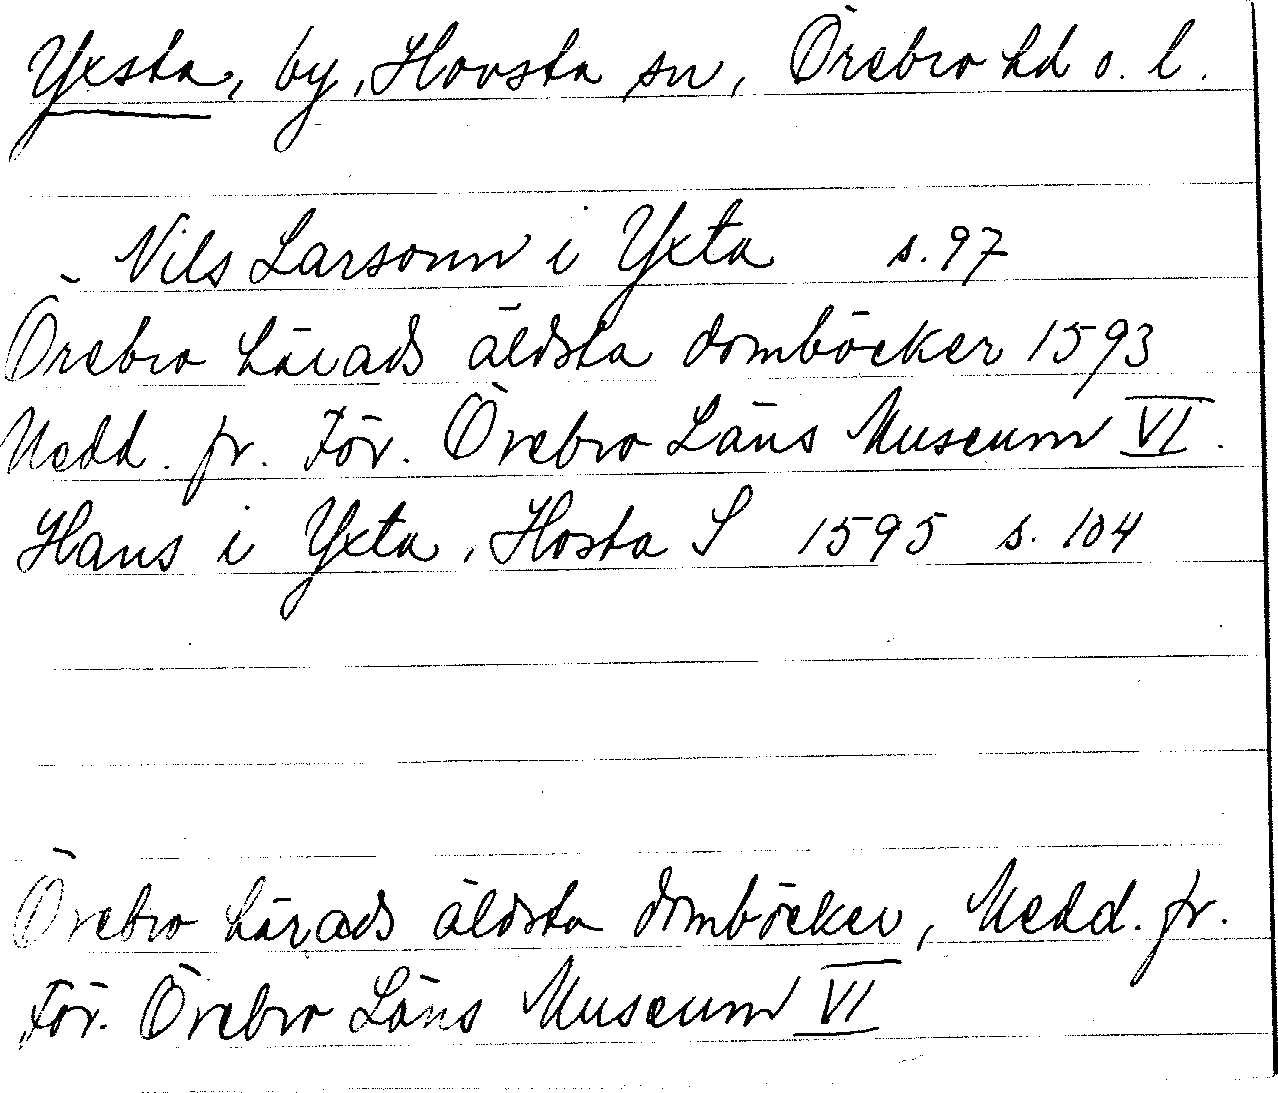 Yxsta, by, Hovsta sn, Örebro hd o. l.
Nils Larsonn i Yxta s. 97
Örebro härads äldsta domböcker 1593
Medd. fr. För. Örebro Läns Museum VI.
Hans i Yxta, Hosta S 1595 s. 104
Örebro härads äldsta domböcker, Medd. fr.
För. Örebro Läns Museum VI